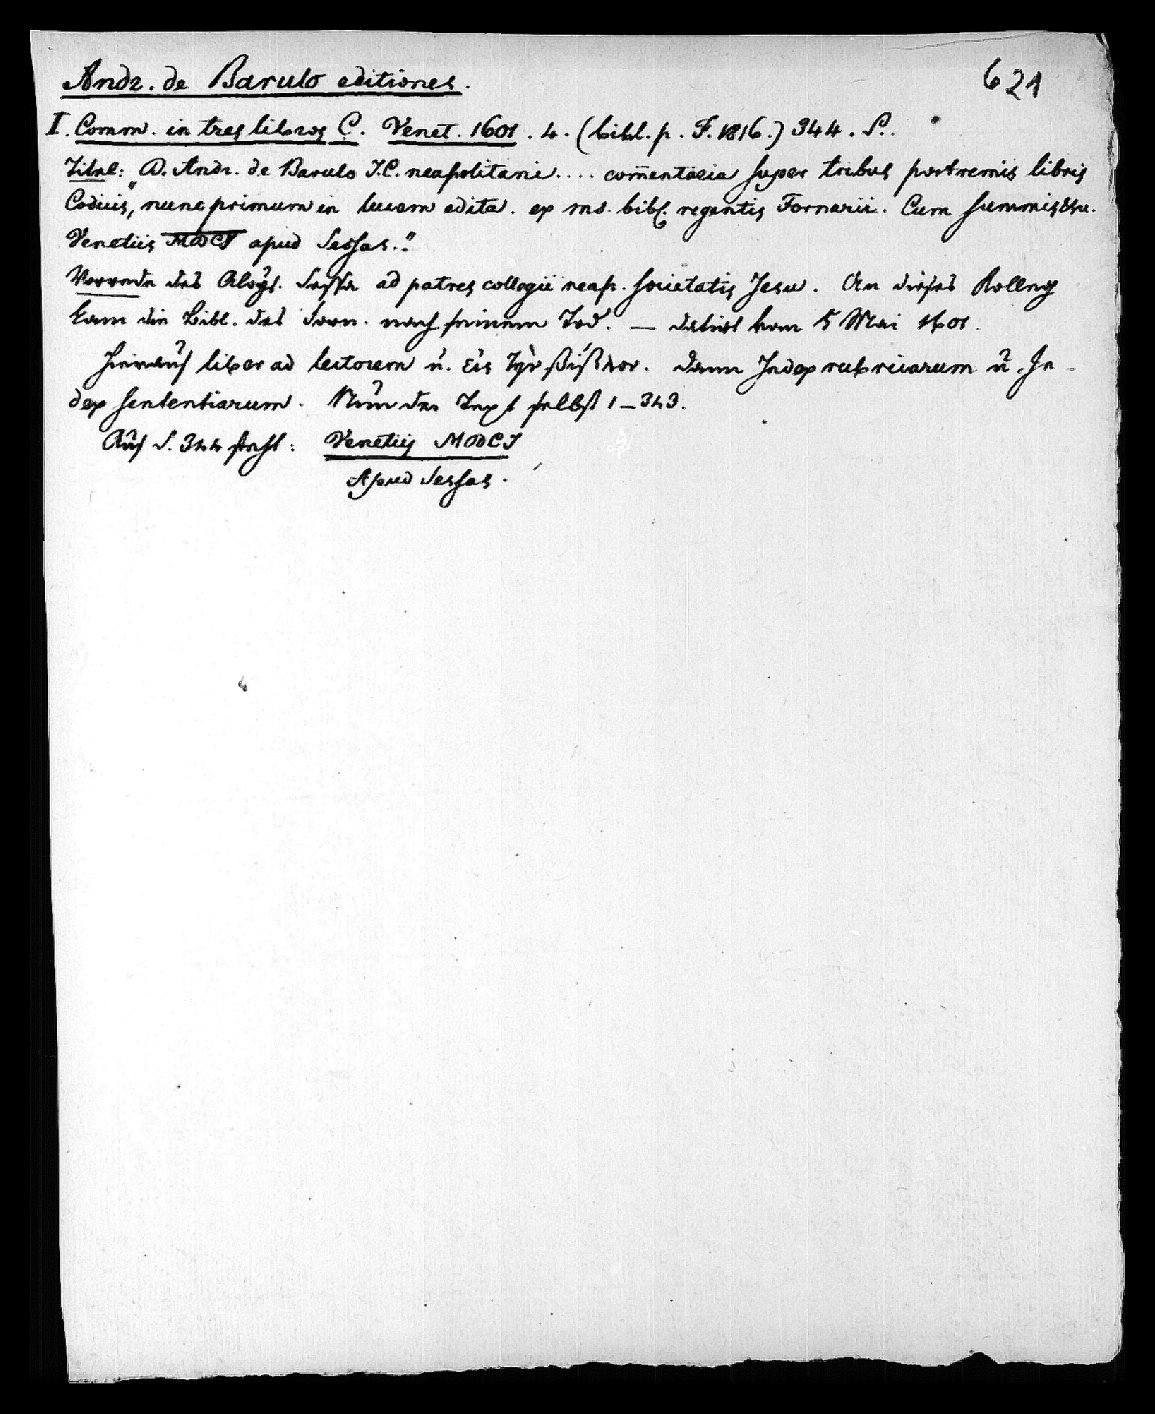 Andr. de Barulo editiones.
621
I. Comm. in tres libros C. Venet. 1601. 4. (bibl. p. F. 1816.) 344. S.
Titel: "D. Andr. de Barulo J.C. neapolitani .... com̄entaria super tribus postremis libris
Codicis, nunc primum in lucem edita. ex ms. bibl. regentis Fornarii. Cum summis &c.
Venetiis MDCI apud Sessas."
Vorrede des Aloys. Sessa ad patres collegii neap. societatis Jesu. An dieses Colleg
kam die Bibl. des Forn. nach seinem Tod. — datirt vom 5 Mai 1601.
Hierauf liber ad lectorem u. Dann Index rubricarum u. In-
dex sententiarum. Nun der Text selbst 1–343.
Auf S. 344 steht: Venetiis MDCI
Apud Sessas.